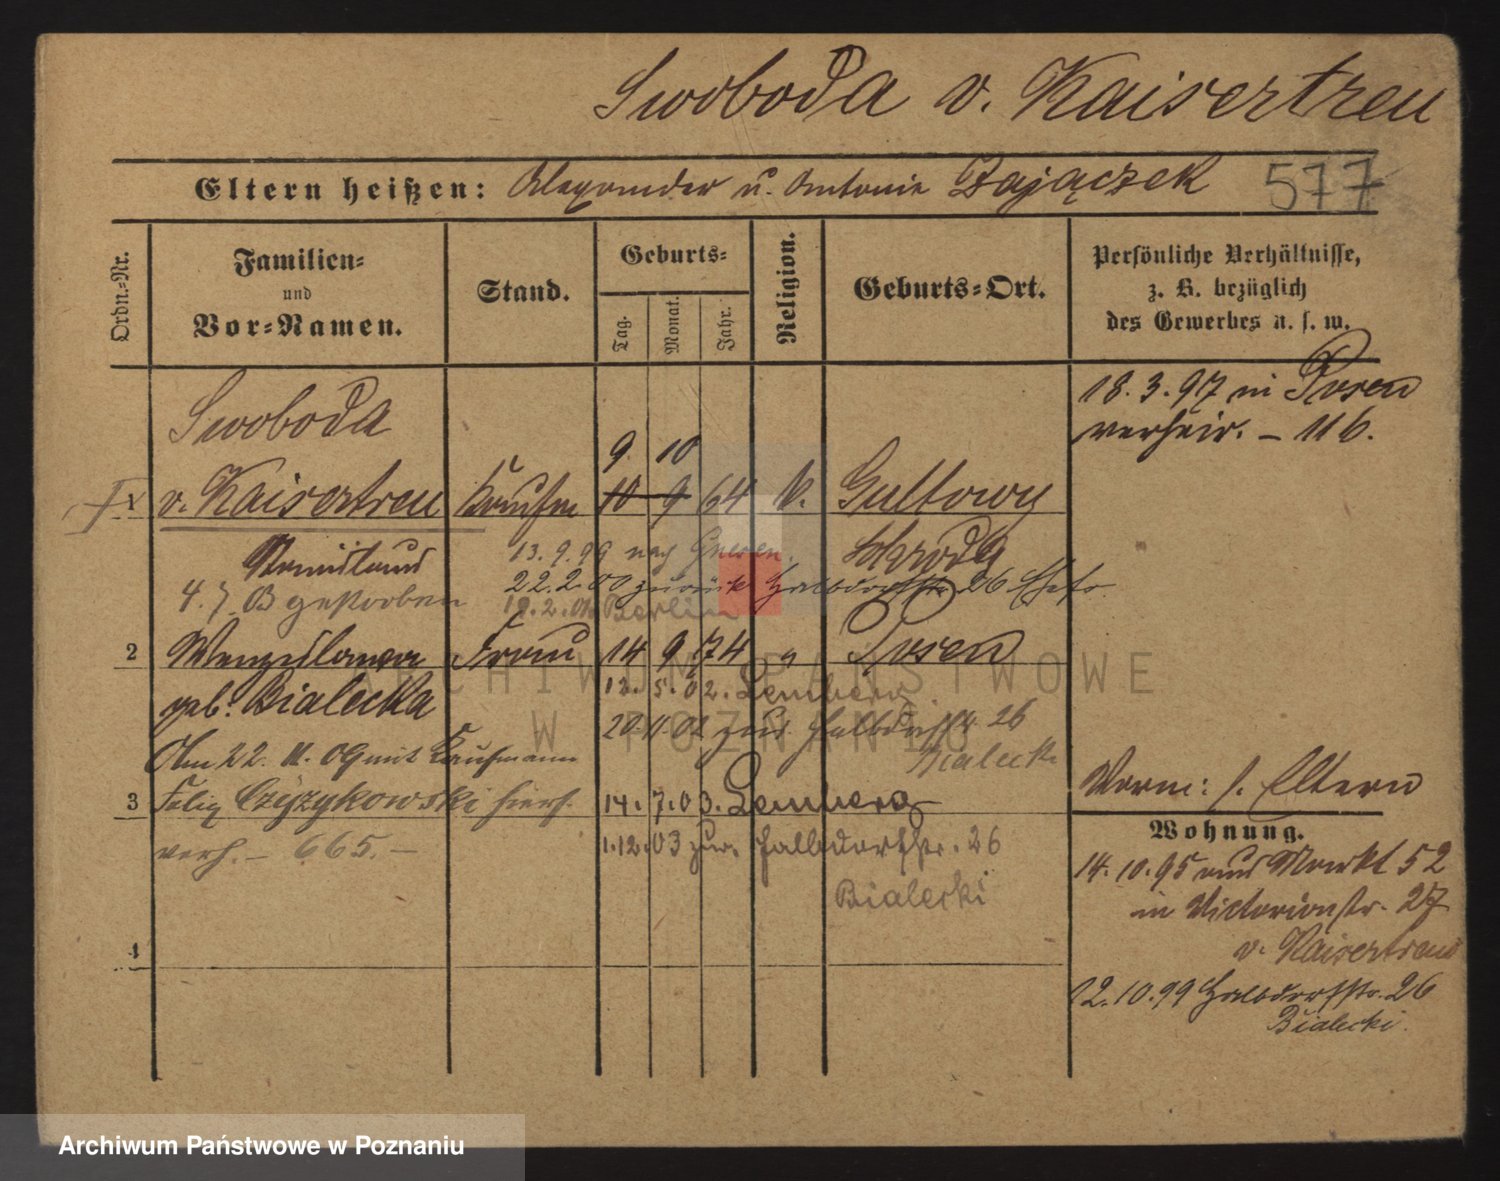 Swoboda v. Kaisertreu
Eltern heißen: Alexander u. Antonie Zajączek 577
Ordn.-Nr.
Familien- und Vor-Namen.
Stand.
Geburts-
Tag. Monat. Jahr.
Religion.
Geburts-Ort.
Persönliche Verhältnisse,
z. B. bezüglich
des Gewerbes u. s. w.
18.3.97 in Posen
verheir. – 116.
Swoboda
9. 10
1 v. Kaisertreu Kaufm 10 9 64 k. Gultowy
Schroda
Stanislaus 13.9.99 nach Gnesen.
22.2.00 zurück Halbdorfstr 26
4.7.03 gestorben
12.2.01 Berlin
2 Wenzeslawa Frau 14 9 74 " Posen
geb. Bialecka 12.5.02. Lemberg
20.11.02 zur. Halbdorfstr. 26
Bialecki
Am 22.11.09 mit Kaufmann
3 Felix Czyzykowski hiers. 14.7.03. Lemberg
verh. – 665. – 1.12.03 zur. Halbdorfstr. 26
Bialecki
4
Vorm: s. Eltern
Wohnung.
14.10.95 aus Markt 52
in Victoriastr. 27
v. Kaisertreu
12.10.99 Halbdorfstr. 26
Bialecki.
ARCHIWUM PAŃSTWOWE
W POZNANIU
Archiwum Państwowe w Poznaniu